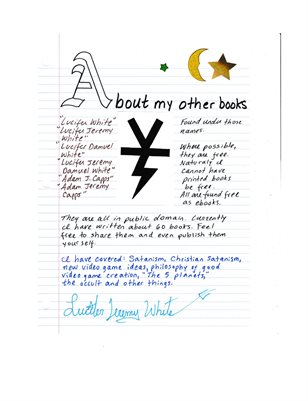 About my other books
"Lucifer White"
"Lucifer Jeremy
White"
"Lucifer Damuel
White"
"Lucifer Jeremy
Damuel White"
"Adam J. Capps"
"Adam Jeremy
Capps"
Found under those
names.
Where possible,
they are free.
Naturally I
cannot have
printed books
be free.
All are found free
as ebooks.
They are all in public domain. Currently
I have written about 60 books. Feel
free to share them and even publish them
yourself.
I have covered: Satanism, Christian Satanism,
new video game ideas, philosophy of good
video game creation, "The 5 planets,"
the occult and other things.
Lucifer Jeremy White